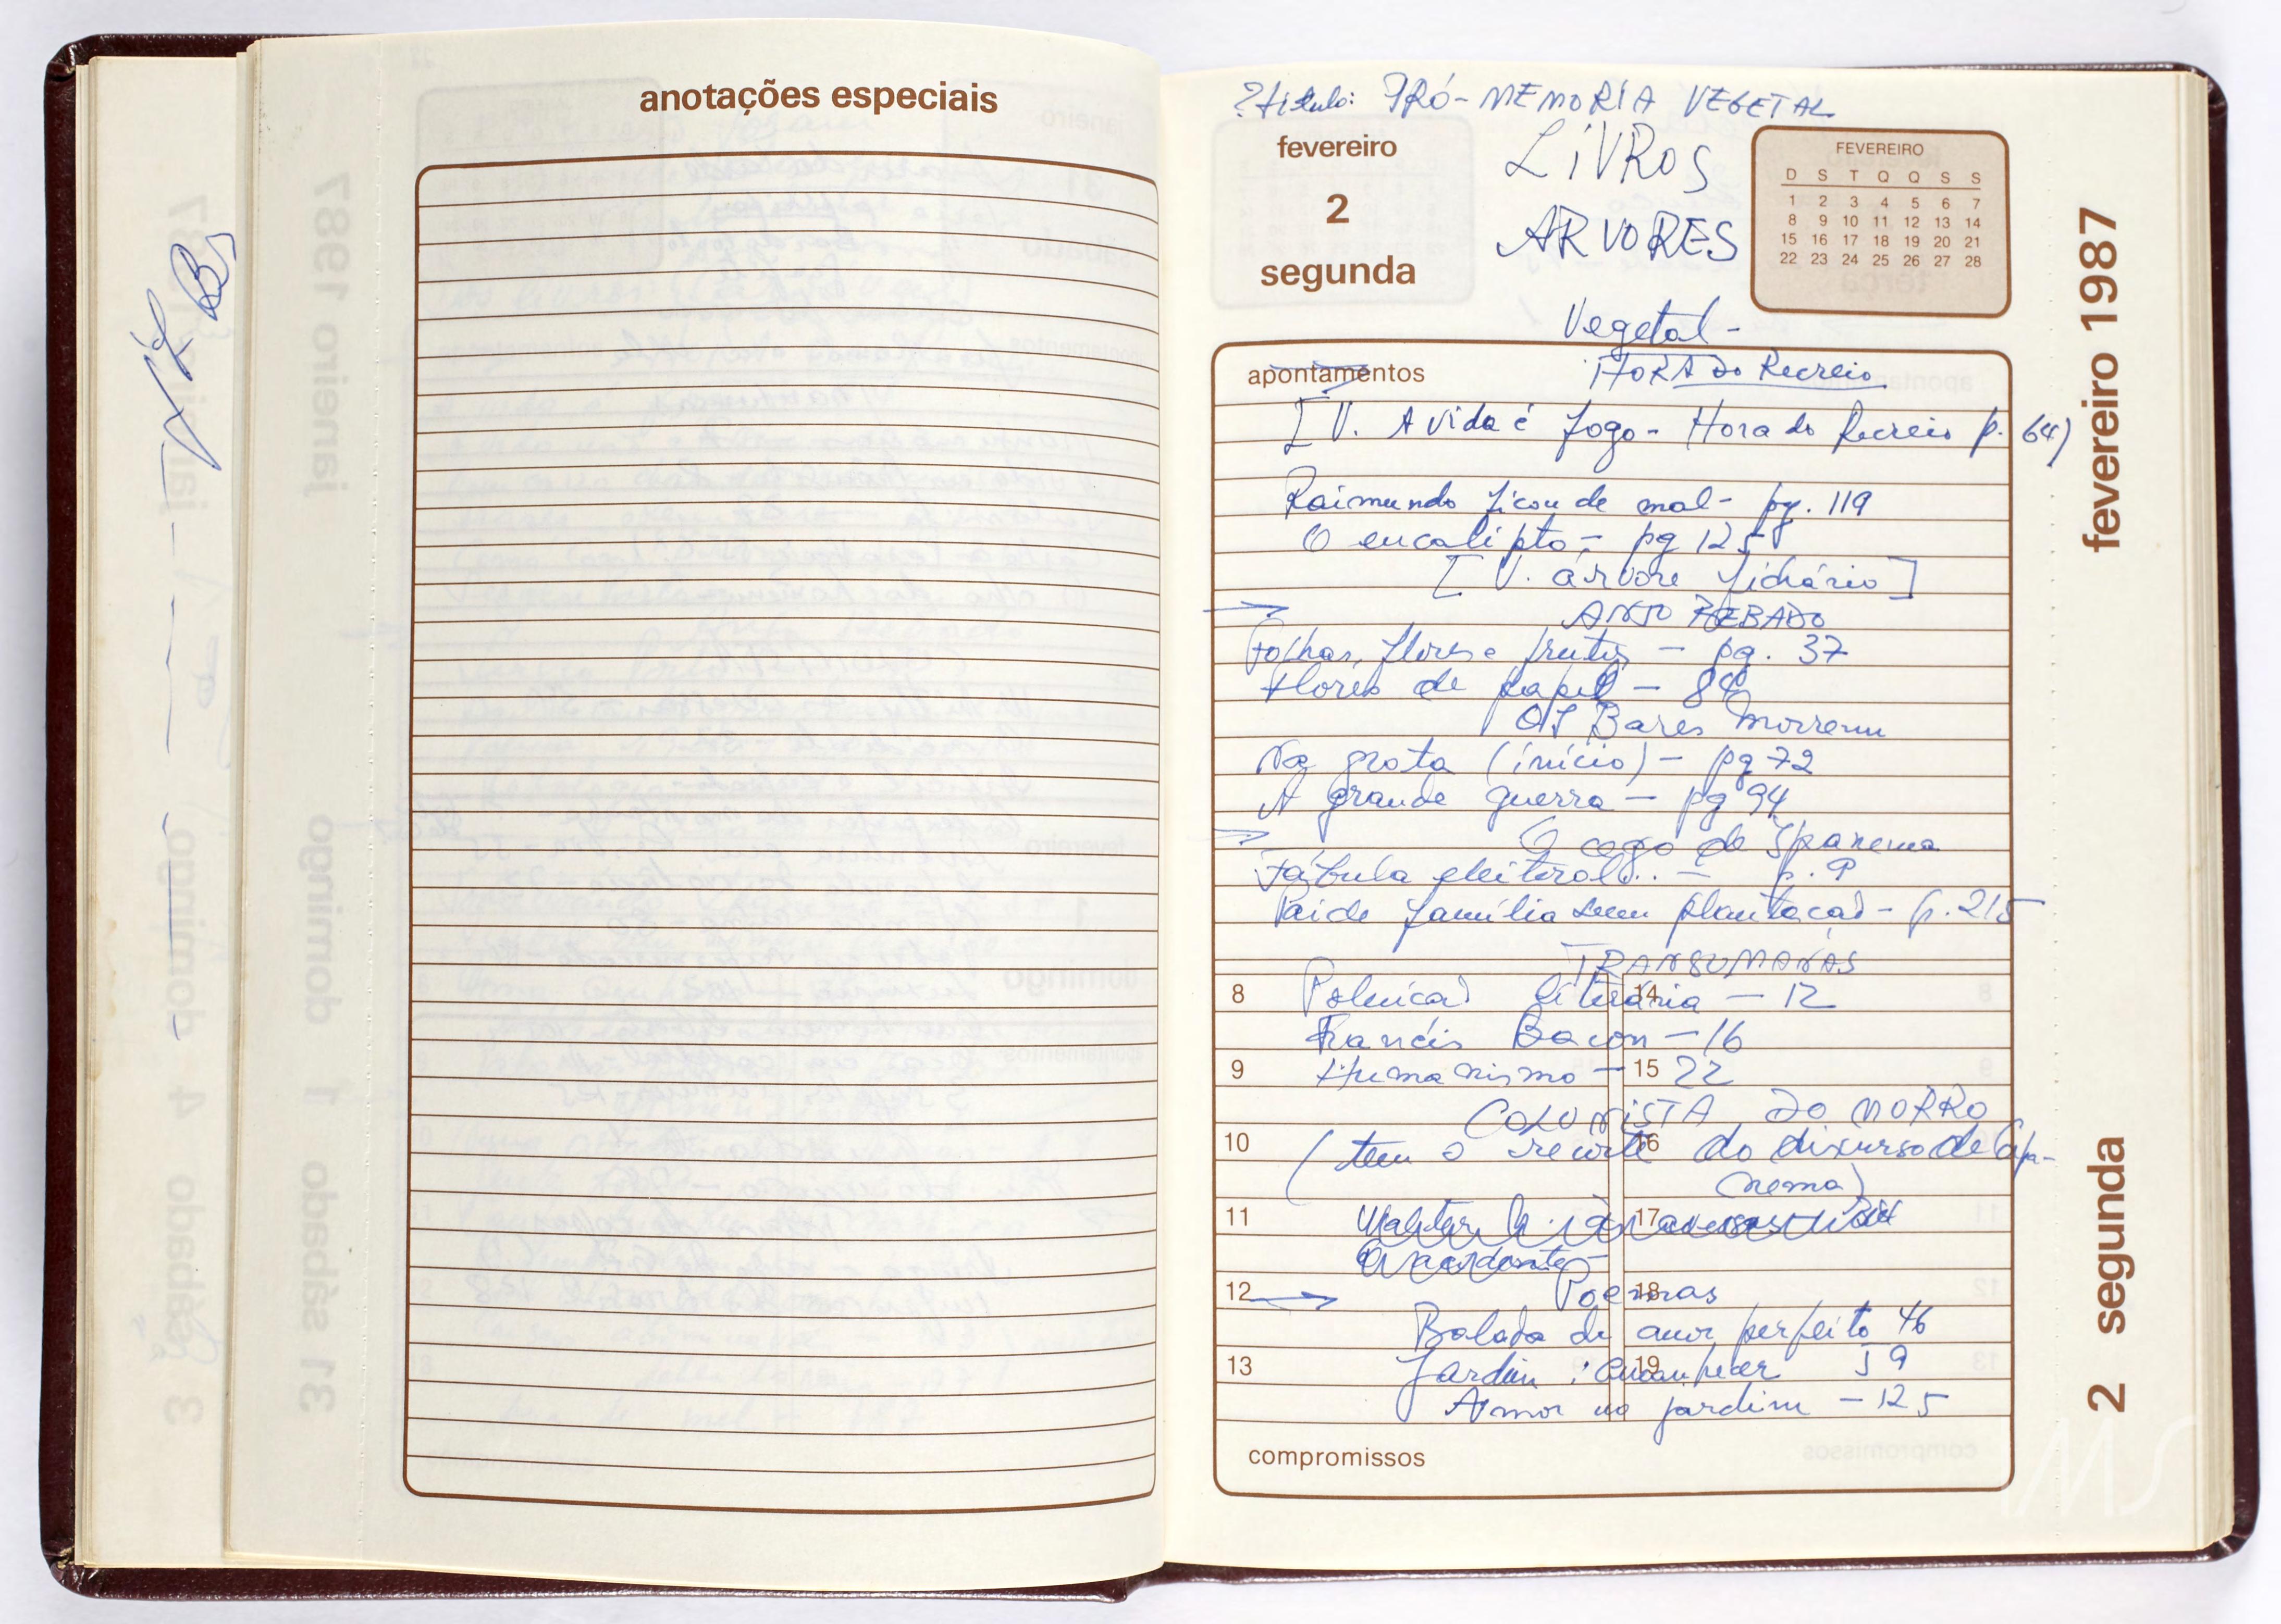 anotações especiais
janeiro 1987
domingo
1
sábado
31
domingo 4
sábado 3
?título: PRÓ-MEMORIA VEGETAL
fevereiro
2
segunda
LIVROS
ARVORES
FEVEREIRO
D S T Q Q S S
1 2 3 4 5 6 7
8 9 10 11 12 13 14
15 16 17 18 19 20 21
22 23 24 25 26 27 28
fevereiro 1987
2 segunda
Vegetal -
apontamentos
HORA DO Recreio
[V. A vida é jogo - Hora do Recreio p. 64)
Raimundo ficou de mal - pg. 119
O eucalipto - pg 125
[V. árvore fichário]
ANJO BEBADO
Folhas, flores e frutos - pg. 37
Flores de papel - 84
Os Bares Morrem
Na grota (início) - pg 72
A grande guerra - pg 94
O cego de Ipanema
Fábula eleitoral.. - p. 9
Pai de família sem plantação - p. 215
TRANSUMANAS
8 Polemica literária - 12 14
Francis Bacon - 16
9 Humanismo - 22 15
COLUNISTA DO MORRO
10 (tem o recorte do discurso de Capa- 16
nema)
11 17
12 Poemas 18
Balada de amor perfeito 46
13 Jardim 59 19
Amor no jardim - 125
compromissos
IMS